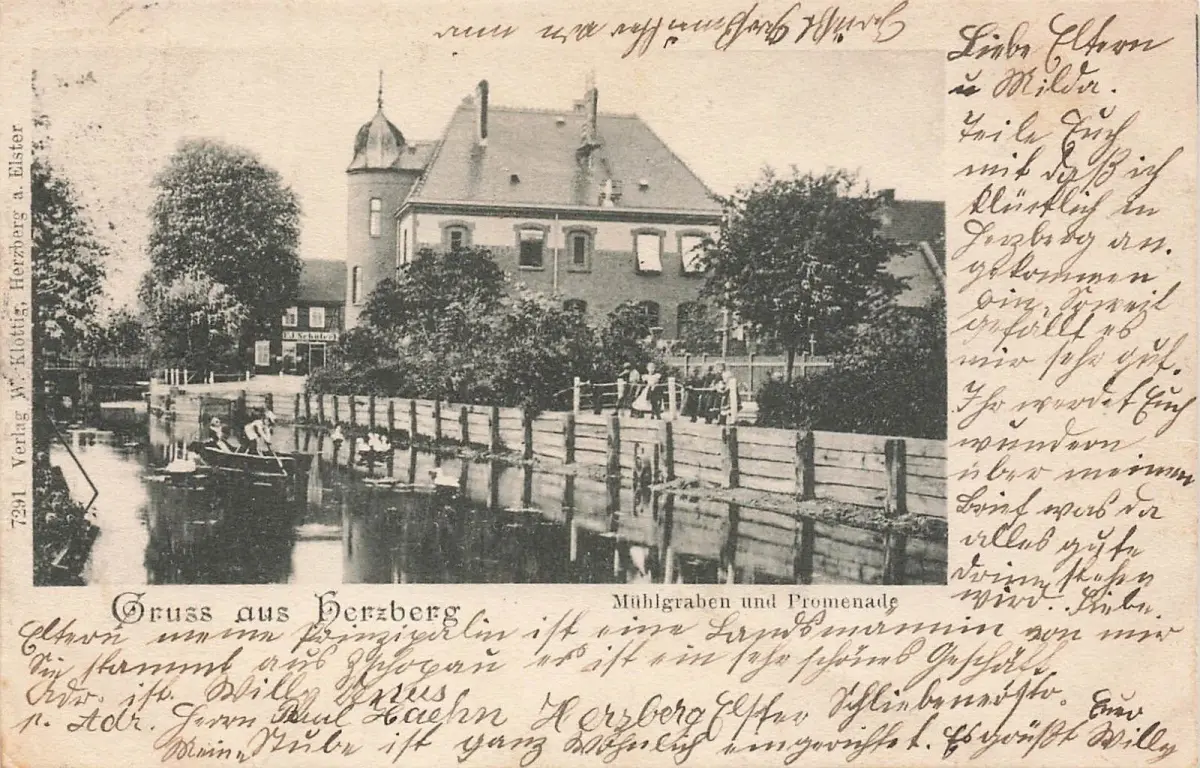 Liebe Eltern
u Milda.
Teile Euch
mit daß ich
Glücklich in
Herzberg an,
gekommen
bin, Soweit
gefällt es
mir sehr gut.
Ihr werdet Euch
wundern
über meinen
Brief was da
alles gute
drinn stehen
wird. Liebe
Eltern meine Prinzipalin ist eine Landsmannin von mir
Sie stammt aus Zschopau es ist ein sehr schönes Geschäft
Adr. ist. Willy
p. Adr. Herrn Paul Haehn Herzberg Elster Schliebenerstr.
Meine Stube ist ganz Wöhnlich eingerichtet. Es grüßt Euer Willy
Gruss aus Herzberg
Mühlgraben und Promenade
7291 Verlag W. Klottig, Herzberg a. Elster